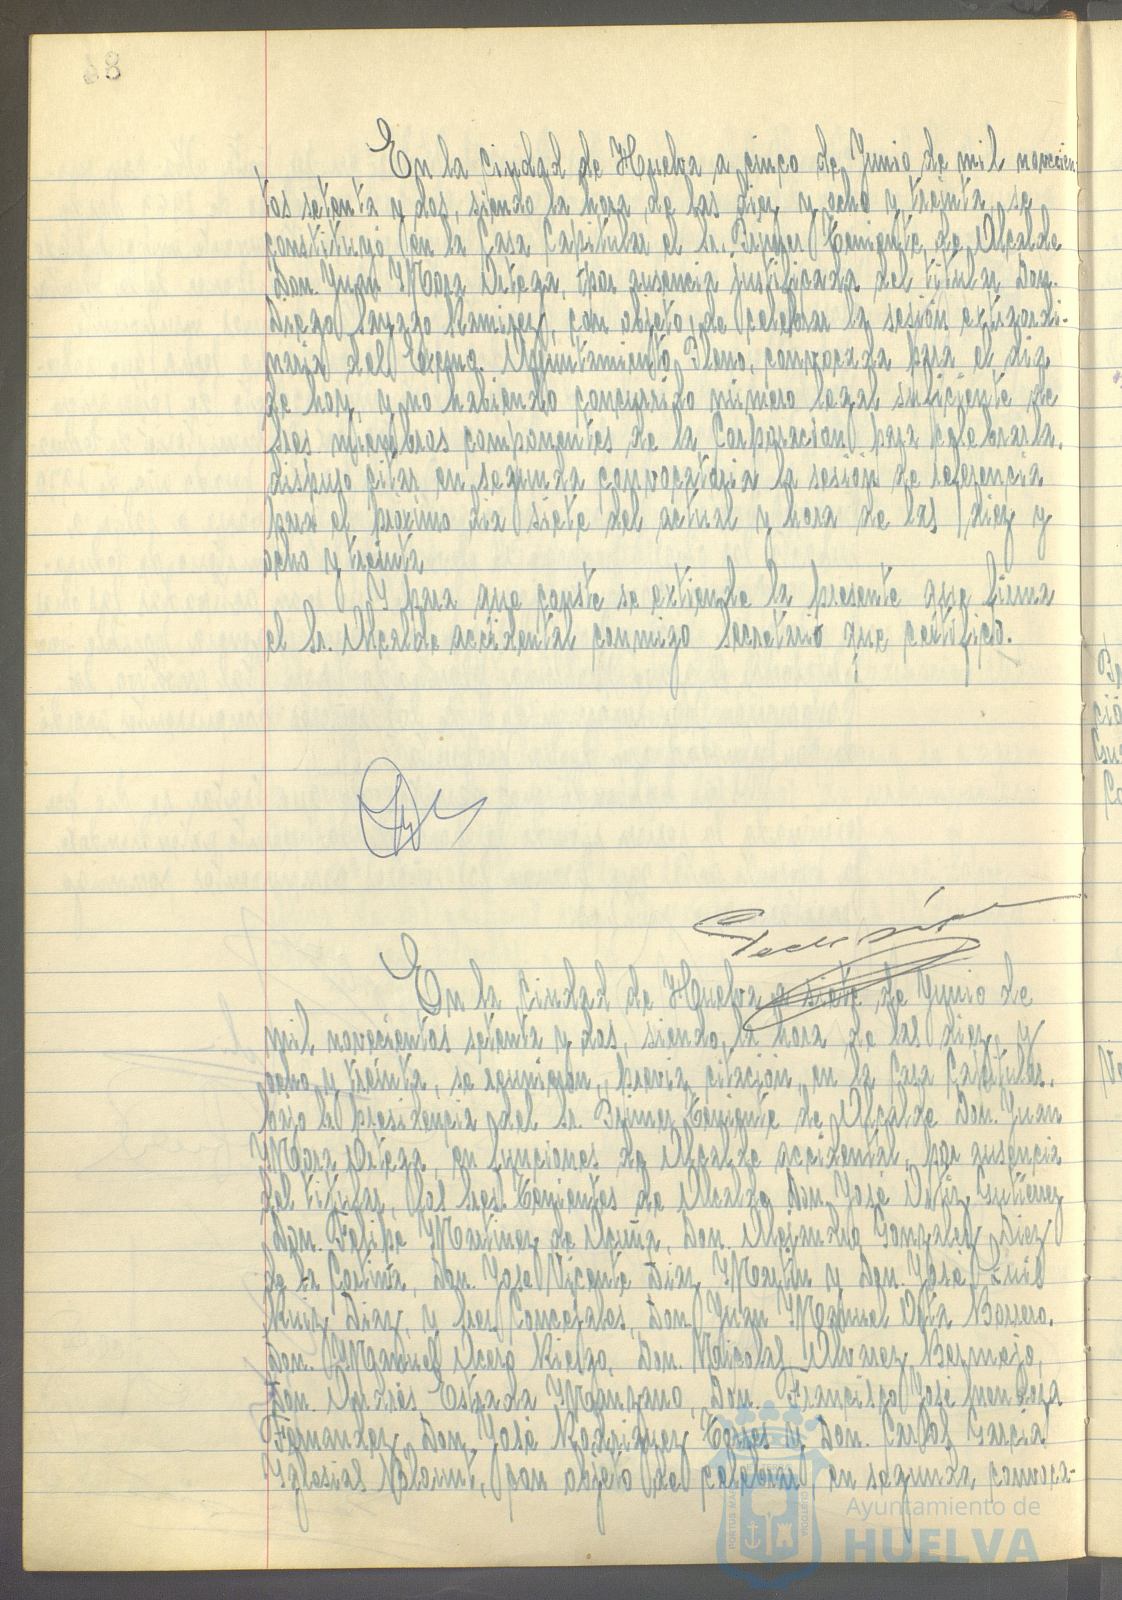 48
En la Ciudad de Huelva a cinco de Junio de mil novecien-
tos setenta y dos, siendo la hora de las diez y ocho y treinta, se
constituyó en la Casa Capitular el Sr. Primer Teniente de Alcalde
Don Juan Mora Ortega, por ausencia justificada del titular Don
Diego Sayago Ramírez, con objeto de celebrar la sesión extraordi-
naria del Excmo. Ayuntamiento Pleno, convocada para el día
de hoy, y no habiendo concurrido número legal suficiente de
Sres miembros componentes de la Corporación para celebrarla,
dispuso citar en segunda convocatoria la sesión de referencia
para el próximo día siete del actual y hora de las diez y
ocho y treinta
Y para que conste se extiende la presente que firma
el Sr. Alcalde accidental conmigo Secretario que certifico.
En la Ciudad de Huelva a siete de Junio de
mil novecientos setenta y dos, siendo la hora de las diez y
ocho y treinta, se reunieron, previa citación, en la Casa Capitular,
bajo la presidencia del Sr. Primer Teniente de Alcalde Don Juan
Mora Ortega, en funciones de Alcalde accidental, por ausencia
del titular, los Sres Tenientes de Alcalde Don José Ortiz Gutiérrez
Don. Felipe Martínez de Acuña, Don. Alejandro González Diez
de la Cortina, Don. José Vicente Díaz Martín y Don. José Luis
Ruiz Díaz, y Sres Concejales, Don Juan Manuel Orta Borrero,
Don. Manuel Acero Riesgo, Don. Nicolás Alvarez Bermejo,
Don. Andrés Estrada Manzano, Don. Francisco José Mendoza
Fernández, Don José Rodríguez Torres y Don. Carlos García
Iglesias Ntorint, con objeto de celebrar, en segunda convoca-
Ayuntamiento de
HUELVA